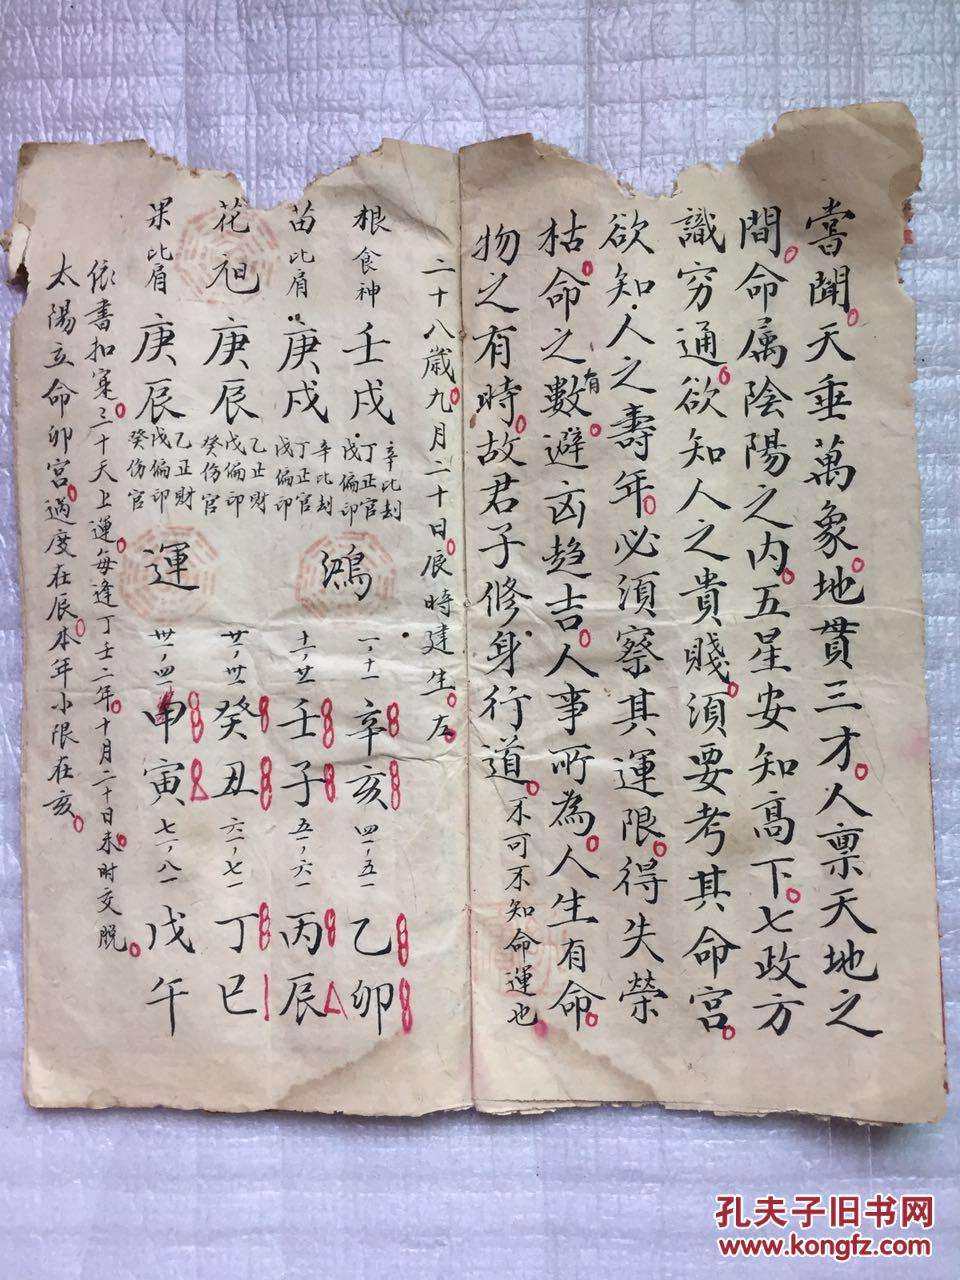 嘗聞。天垂萬象。地貫三才。人禀天地之
間。命属陰陽之内。五星安知高下。七政方
識穷通。欲知人之貴賤。須要考其命宮。
欲知人之壽年。必須察其運限。得失榮
枯。命之有數。避凶趋吉。人事所為。人生有命。
物之有時。故君子修身行道。不可不知命運也
二十八歲九月二十日。辰時建生。左。
根 食神 壬戌 辛比刦 丁正官 戊偏印
苗 比肩 庚戌 辛比刦 丁正官 戊偏印
花 庚辰 乙正財 戊偏印 癸伤官
果 比肩 庚辰 乙正財 戊偏印 癸伤官
鴻運
一、十一 辛亥 四一、五一 乙卯
十一、廿一 壬子 五一、六一 丙辰
廿一、卅一 癸丑 六一、七一 丁巳
卅一、四一 甲寅 七一、八一 戊午
依書扣寔。三十天上運。每逢丁壬二年。十月二十日未时交脱。
太陽立命卯宮。過度在辰。本年小限在亥。
孔夫子旧书网
www.kongfz.com